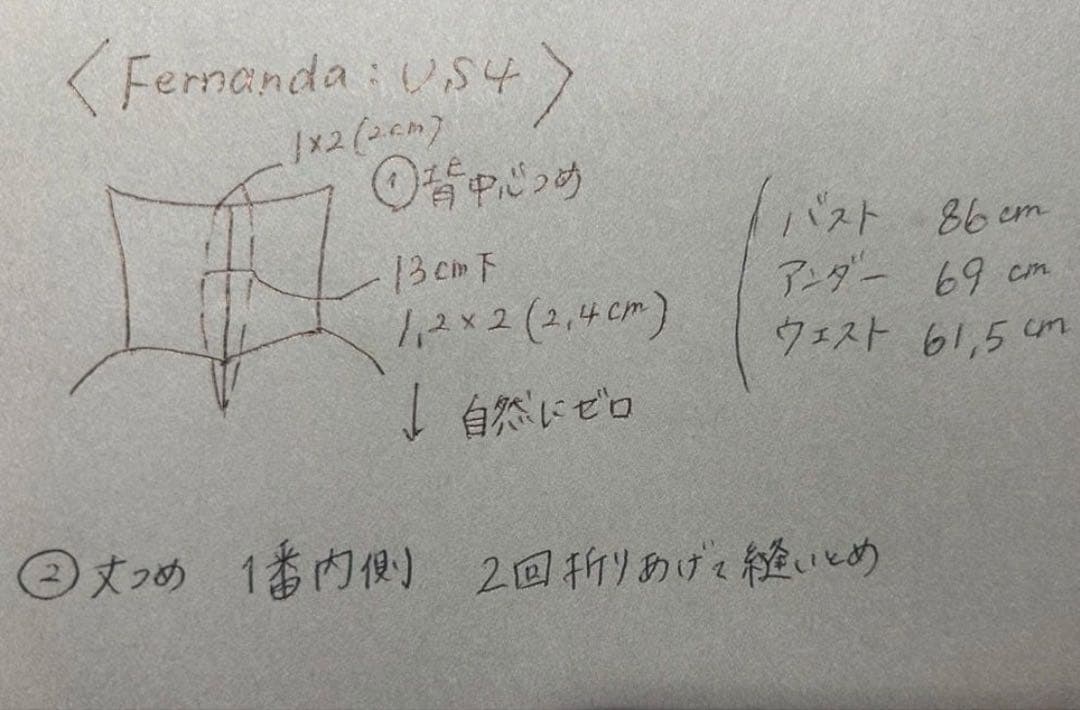 〈Fernanda：US4〉
1×2(2cm)
①背中心つめ
13cm下
1,2×2(2,4cm)
↓ 自然にゼロ
バスト 86cm
アンダー 69cm
ウェスト 61,5cm
②丈つめ 1番内側 2回折りあげて縫いとめ